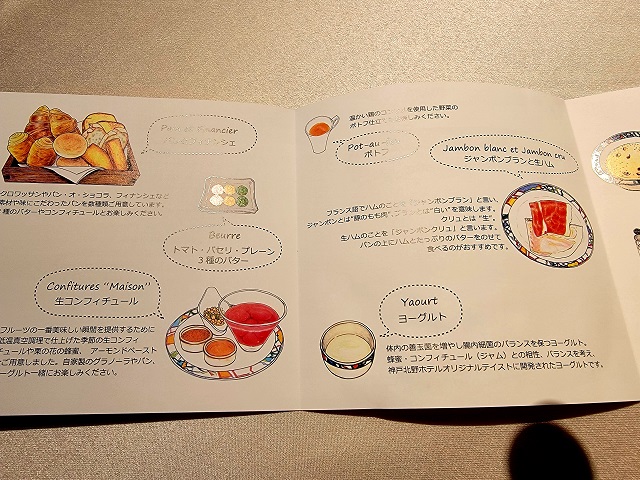 Pain et Financier
クロワッサンやパン・オ・ショコラ、フィナンシェなど
素材や味にこだわったパンを数種類ご用意しています。
種のバターやコンフィチュールとお楽しみください。
Beurre
トマト・パセリ・プレーン
3種のバター
Confitures “Maison”
生コンフィチュール
フルーツの一番美味しい瞬間を提供するために
低温真空調理で仕上げた季節の生コンフィ
チュールや栗の花の蜂蜜、アーモンドペースト
ご用意しました。自家製のグラノーラやパン、
ーグルト一緒にお楽しみください。
温かい鶏のコン を使用した野菜の
ポトフ仕立 しみください。
Pot-au-
ポトフ
Jambon blanc et Jambon cru
ジャンボンブランと生ハム
フランス語でハムのことを「ジャンボンブラン」と言い、
ジャンボンとは“豚のもも肉”、ブランとは“白い”を意味します。
クリュとは“生”。
生ハムのことを「ジャンボンクリュ」と言います。
パンの上にハムとたっぷりのバターをのせて
食べるのがおすすめです。
Yaourt
ヨーグルト
体内の善玉菌を増やし腸内細菌のバランスを保つヨーグルト。
蜂蜜・コンフィチュール（ジャム）との相性、バランスを考え、
神戸北野ホテルオリジナルテイストに開発されたヨーグルトです。